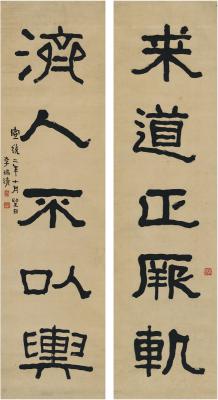 来道正厥軌
濟人不以輿
宣統二年十月日
李瑞清